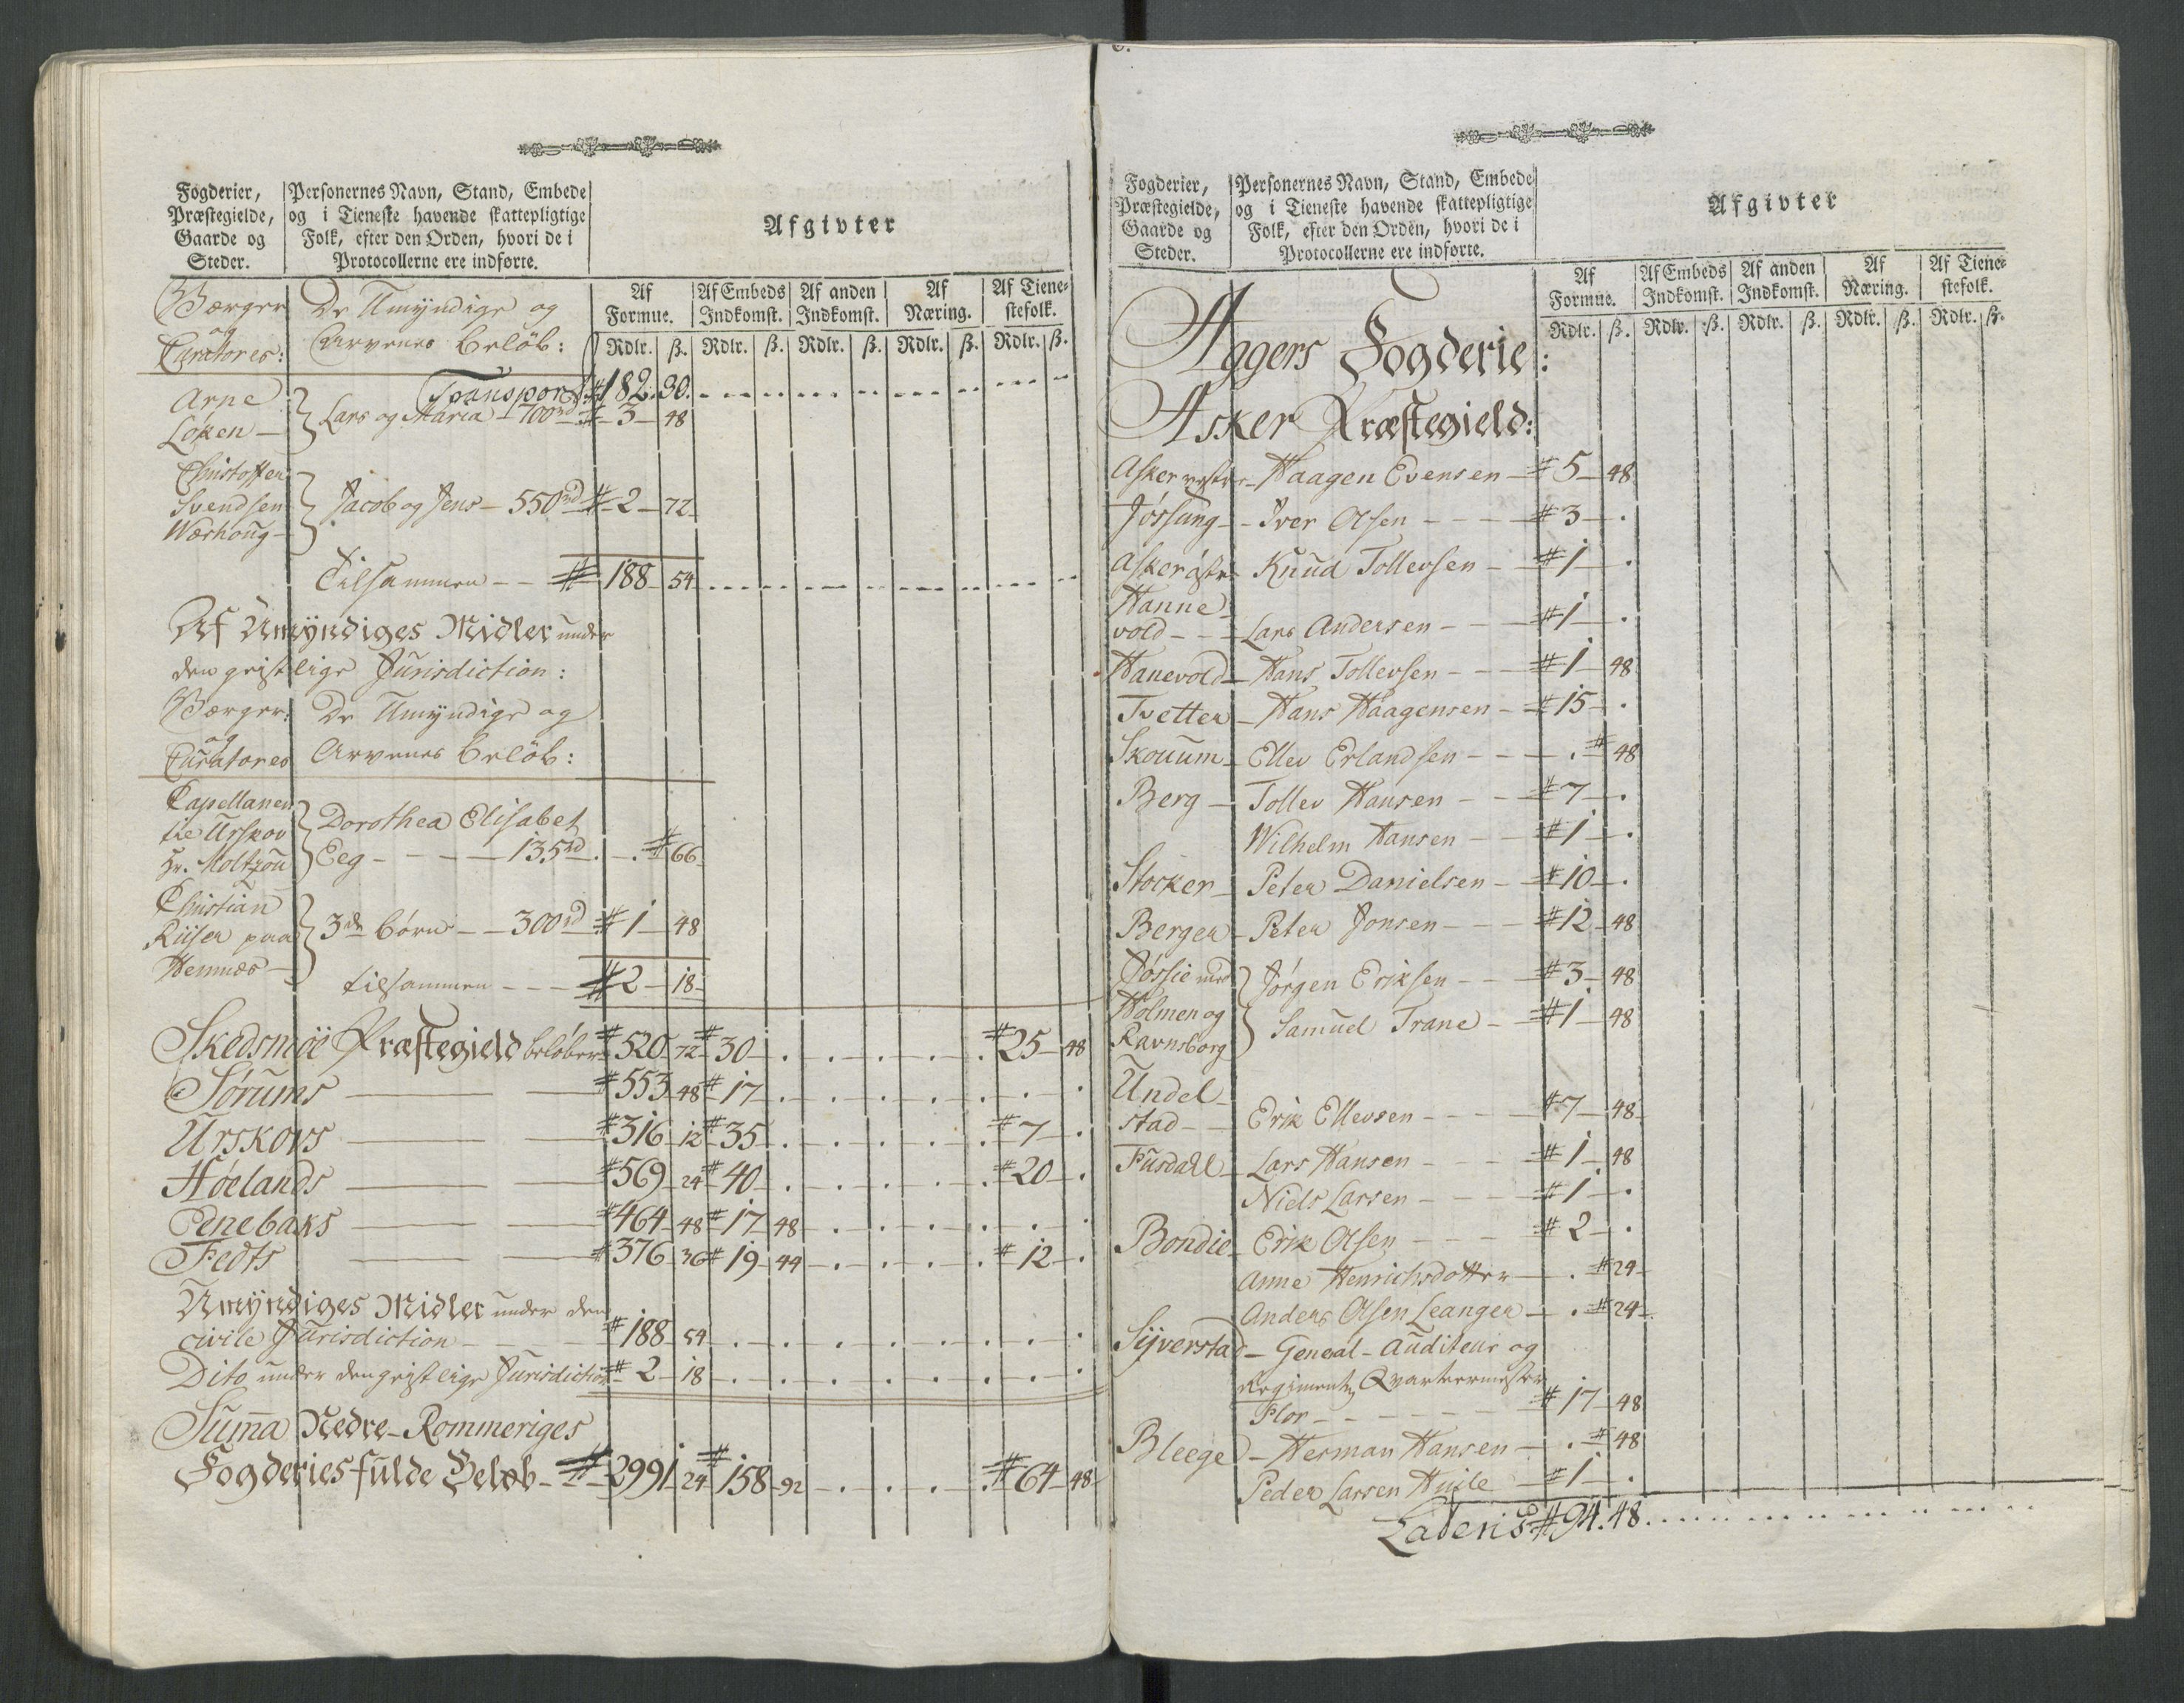 Fogderier, Præstegielde, Gaarde og Steder.
Personernes Navn, Stand, Embede og i Tieneste havende skattepligtige Folk, efter den Orden, hvori de i Protocollerne ere indførte.
Afgivter
Af Formue. Af Embeds Indkomst. Af anden Indkomst. Af Næring. Af Tienestefolk.
Rdlr. ß. Rdlr. ß. Rdlr. ß. Rdlr. ß. Rdlr. ß.
Værger og Curatores: De Umÿndige og Arvenes Beløb:
Transport # 182. 30.
Arne Løken — Lars og Maria — 700rd # 3 — 48
Christoffer Svendsen Wærhoug — Jacob og Jens — 550rd # 2 — 72
Tilsammen — # 188 — 54
Af Umÿndiges Midler under
den geistlige Jurisdiction:
Værger og Curatores De Umÿndige og Arvenes Beløb:
Capellanen til Urskov Hr. Moltzou Dorothea Elisabet
Eeg — 135rd . — . # 66
Christian Riiser paa Hemnæs — 3de Børn — 300rd # 1 — 48
tilsammen — # 2 — 18
Skedsmöe Præstegield beløber # 520 — 72 # 30 — . # 25 — 48
Sørums — # 553 — 48 # 17 — .
Urskovs — # 316 — 12 # 35 — . # 7 — .
Høelands — # 569 — 24 # 40 — . # 20 — .
Enebaks — # 464 — 48 # 17 — 48
Fedts — # 376 — 36 # 19 — 44 # 12 — .
Umÿndiges Midler under den
civile Jurisdiction — # 188 — 54
Dito under den geistlige Jurisdiction # 2 — 18
Suma Nedre-Rommeriges
Fogderies fulde Beløb — # 2991 — 24 # 158 — 92 # 64 — 48
Fogderier, Præstegielde, Gaarde og Steder.
Personernes Navn, Stand, Embede og i Tieneste havende skattepligtige Folk, efter den Orden, hvori de i Protocollerne ere indførte.
Afgivter
Af Formue. Af Embeds Indkomst. Af anden Indkomst. Af Næring. Af Tienestefolk.
Rdlr. ß. Rdlr. ß. Rdlr. ß. Rdlr. ß. Rdlr. ß.
Aggers Fogderie:
Asker Præstegield:
Asker vestre — Haagen Evensen — # 5 — 48
Jøssung — Iver Olsen — # 3 — .
Asker østre Knud Tollevsen — # 1 — .
Hanne
vold — Lars Andersen — # 1 — .
Hanevold — Hans Tollevsen — # 1 — 48
Tvetter — Hans Haagensen — # 15 — .
Skouum — Ellev Erlandsen — . # 48
Berg — Tollev Hansen — # 7 — .
Wilhelm Hansen — # 1 — .
Stocker — Peter Danielsen — # 10 — .
Berger — Peter Jonsen — # 12 — 48
Jøssie med Jørgen Eriksen — # 3 — 48
Holmen og Ravnsborg Samuel Trane — # 1 — 48
Undel-
stad — Erik Ellevsen — # 7 — 48
Fusdall — Lars Hansen — # 1 — 48
Niels Larsen — # 1 — .
Bondie — Erik Olsen — # 2 — .
Anne Henrichsdotter — . # 24
Anders Olsen Leanger — . # 24
Sÿverstad — General-Auditeur og
Regiments Qvarteermester
Flor — # 17 — 48
Bleege — Herman Hansen — . # 48
Peder Larsen Huile — # 1 — .
Lateris # 94. 48.